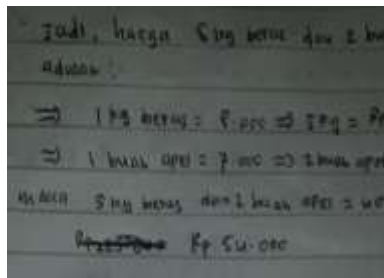 Jadi, harga 5 kg beras dan 2 bu
adalah :
⇒ 1 kg beras = 8.000 ⇒ 5 kg = Rp
⇒ 1 buah apel = 7.000 ⇒ 2 buah apel
maka 5 kg beras dan 2 buah apel =
Rp 54.000